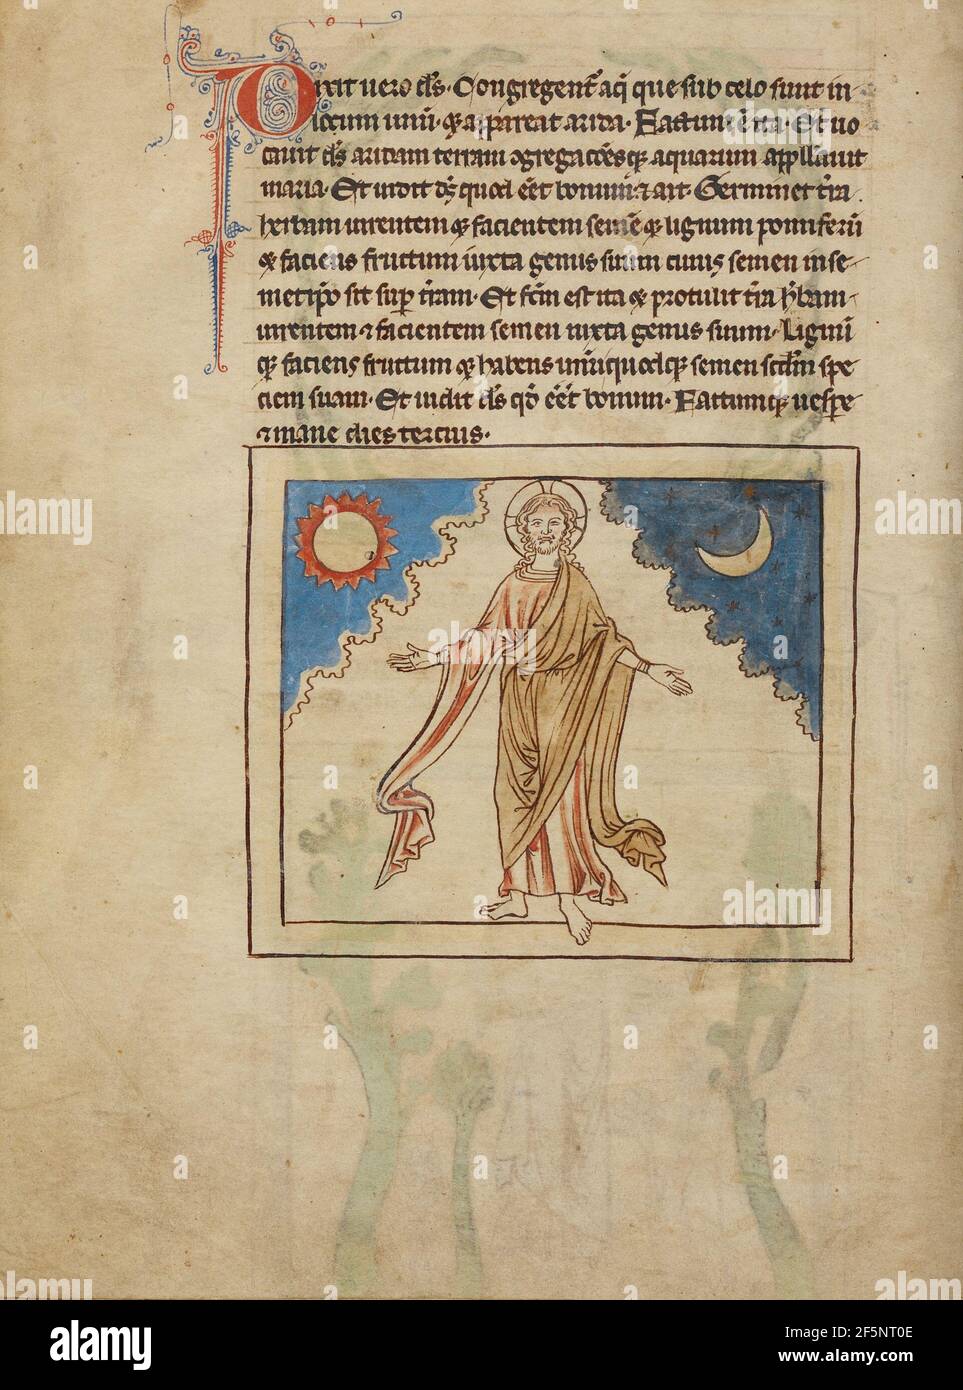 Dixit uero d̅s. Congregent᷑ aq̅ que sub celo sunt in
locum unu̅. ⁊ appareat arida. Factum e̅ ita. Et uo
cauit d̅s aridam terram ⁊gregac̅o̅es q; aquarum appllauit
maria. Et uidit d̅s quod e̅et bonum ⁊ ait. Germinet t̅ra
herbam uirentem ⁊ facientem seme̅ ⁊ lignum pomiferu̅
⁊ faciens fructum iuxta genus suum cuius semen in se
metip̅o sit sup̲ t̅ram. Et f̅c̅m est ita ⁊ protulit t̅ra h̅bam
uirentem ⁊ facientem semen iuxta genus suum. Lignu̅
q; faciens fructum ⁊ habens unu̅quodq; semen sc̅d̅m spe
ciem suam. Et uidit d̅s qd̅ e̅e̅t bonum. Factumq; uesp̲e
⁊ mane dies tercius.
alamy
alamy
Image ID: 2F5NT0E
www.alamy.com